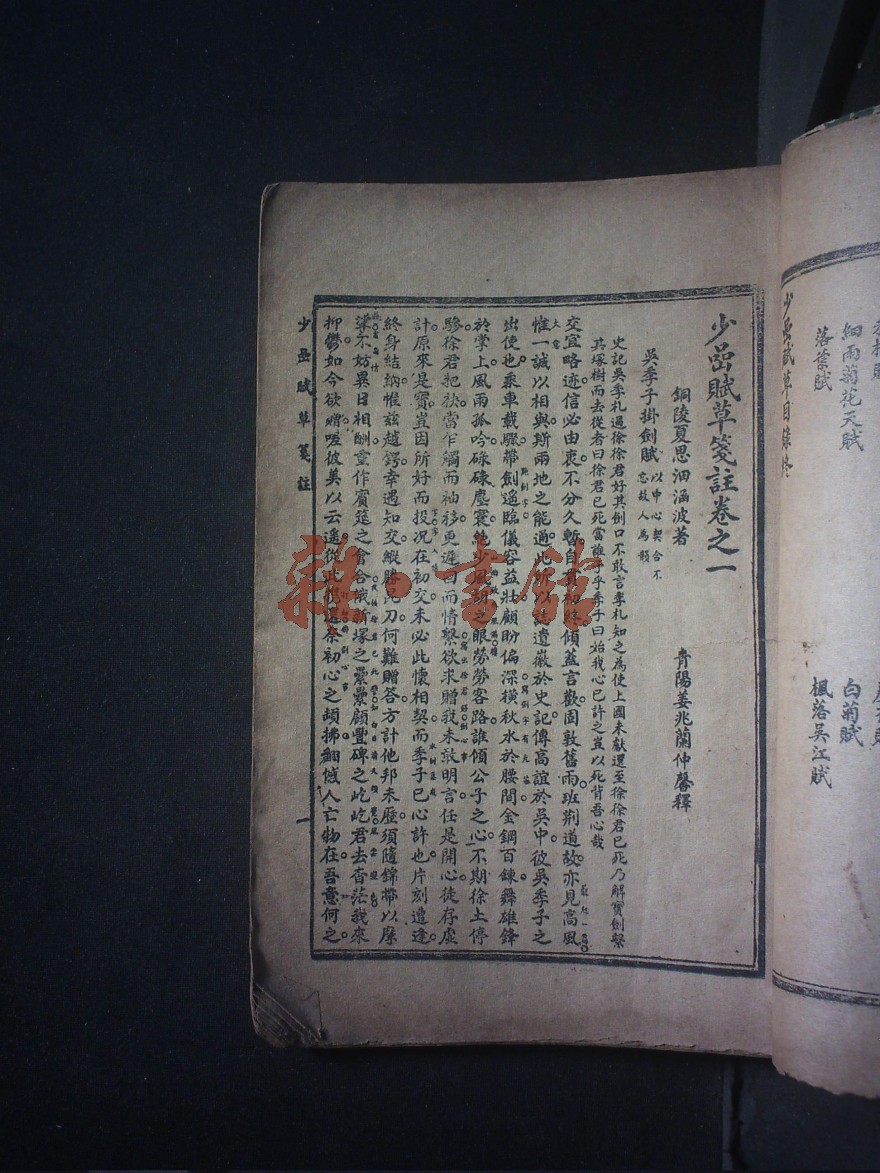 少嵒賦草目錄終
細雨菊花天賦
白菊賦
落葉賦
楓落吳江賦
少嵒賦草箋註卷之一
銅陵夏思沺涵波著
青陽姜兆蘭仲馨釋
吳季子掛劍賦
以中心契合不
忘故人為韻
史記吳季札過徐徐君好其劍口不敢言季札知之為使上國未獻還至徐徐君已死乃解寶劍繫
其塚樹而去從者曰徐君已死當誰予乎季子曰始我心已許之豈以死背吾心哉
交宜略迹信必由衷不分久暫自貫初終傾蓋言歡固敦舊雨班荆道故亦見高風
惟一誠以相與斯兩地之能通此所以遺徽於史記傳高誼於吳中彼吳季子之
出使也乘車載驟帶劍遙臨儀容益壯顧盼偏深橫秋水於腰間金鋼百鍊舞雄鋒
於掌上風雨孤吟碌碌塵寰絶少風胡之眼勞勞客路誰傾公子之心不期徐土停
驂徐君把袂當乍觸而袖移更遲回而情繫欲求贈我未敢明言任是開心徒存虛
計原來是寶豈因所好而投况在初交未必此懷相契而季子已心許也片刻遭逢
終身結納惟茲越鍔幸遇知交縱勝呂刀何難贈答方計他邦未歷須隨錦帶以摩
挲尔姑異日相酬重作賓筵之會合俄新塚之纍纍顧豐碑之屹屹君去杳茫我來
抑鬱如今欲贈嗟彼美以云遥從此奈初心之頓拂翻憾人亡物在吾意何之
少嵒賦草箋註
一
雜書館